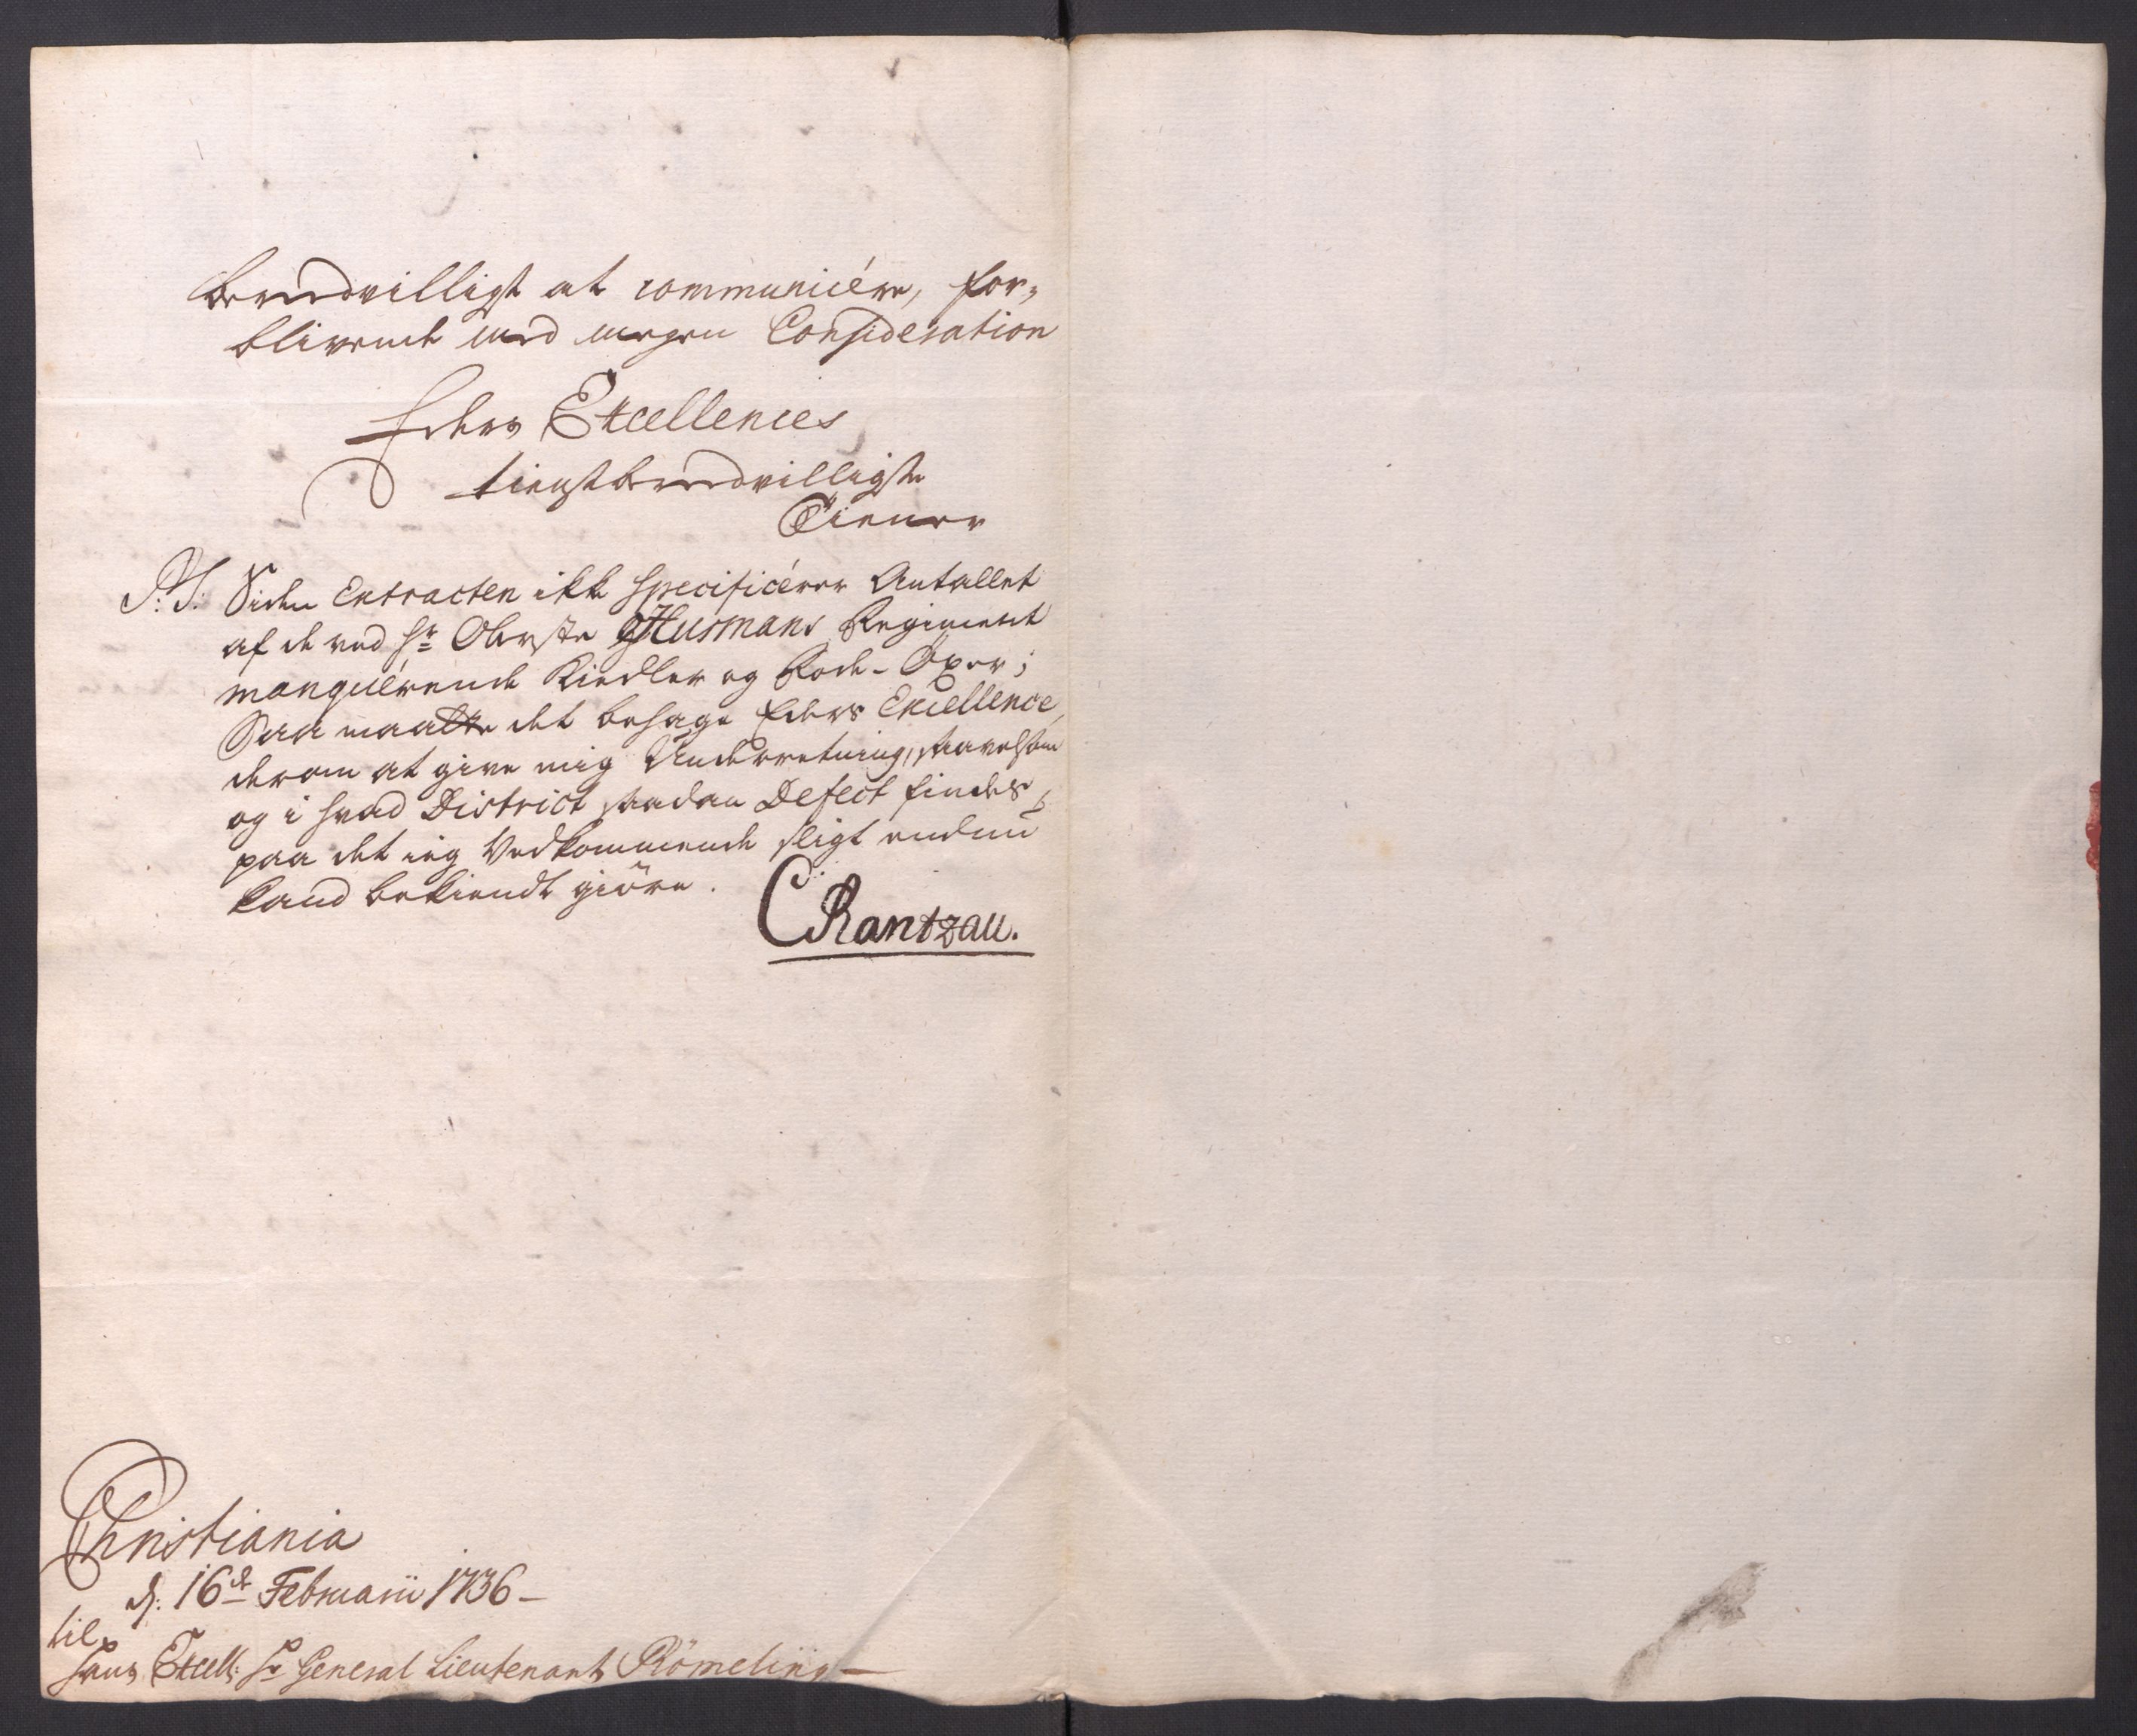 beredvilligst at communicére, for-
blivende med megen Consideration
Eders Excellences
tienstberedvilligste
Tienere
P:S: Siden Extracten ikke specificérer Antallet
af de ved Hr Oberste Husmans Regiment
manquérende Kiedler og Rode-Öxer;
Saa maatte det behage Eders Excellence,
derom at give mig Underretning, saavelsom
og i hvad District saadan Defect findes,
paa det ieg Vedkommende sligt endnu
kand bekiendt giöre.
CRantzau.
Christiania
d. 16de Februarii 1736 –
til
Hans Excell: Hr General Lieutenant Römeling –